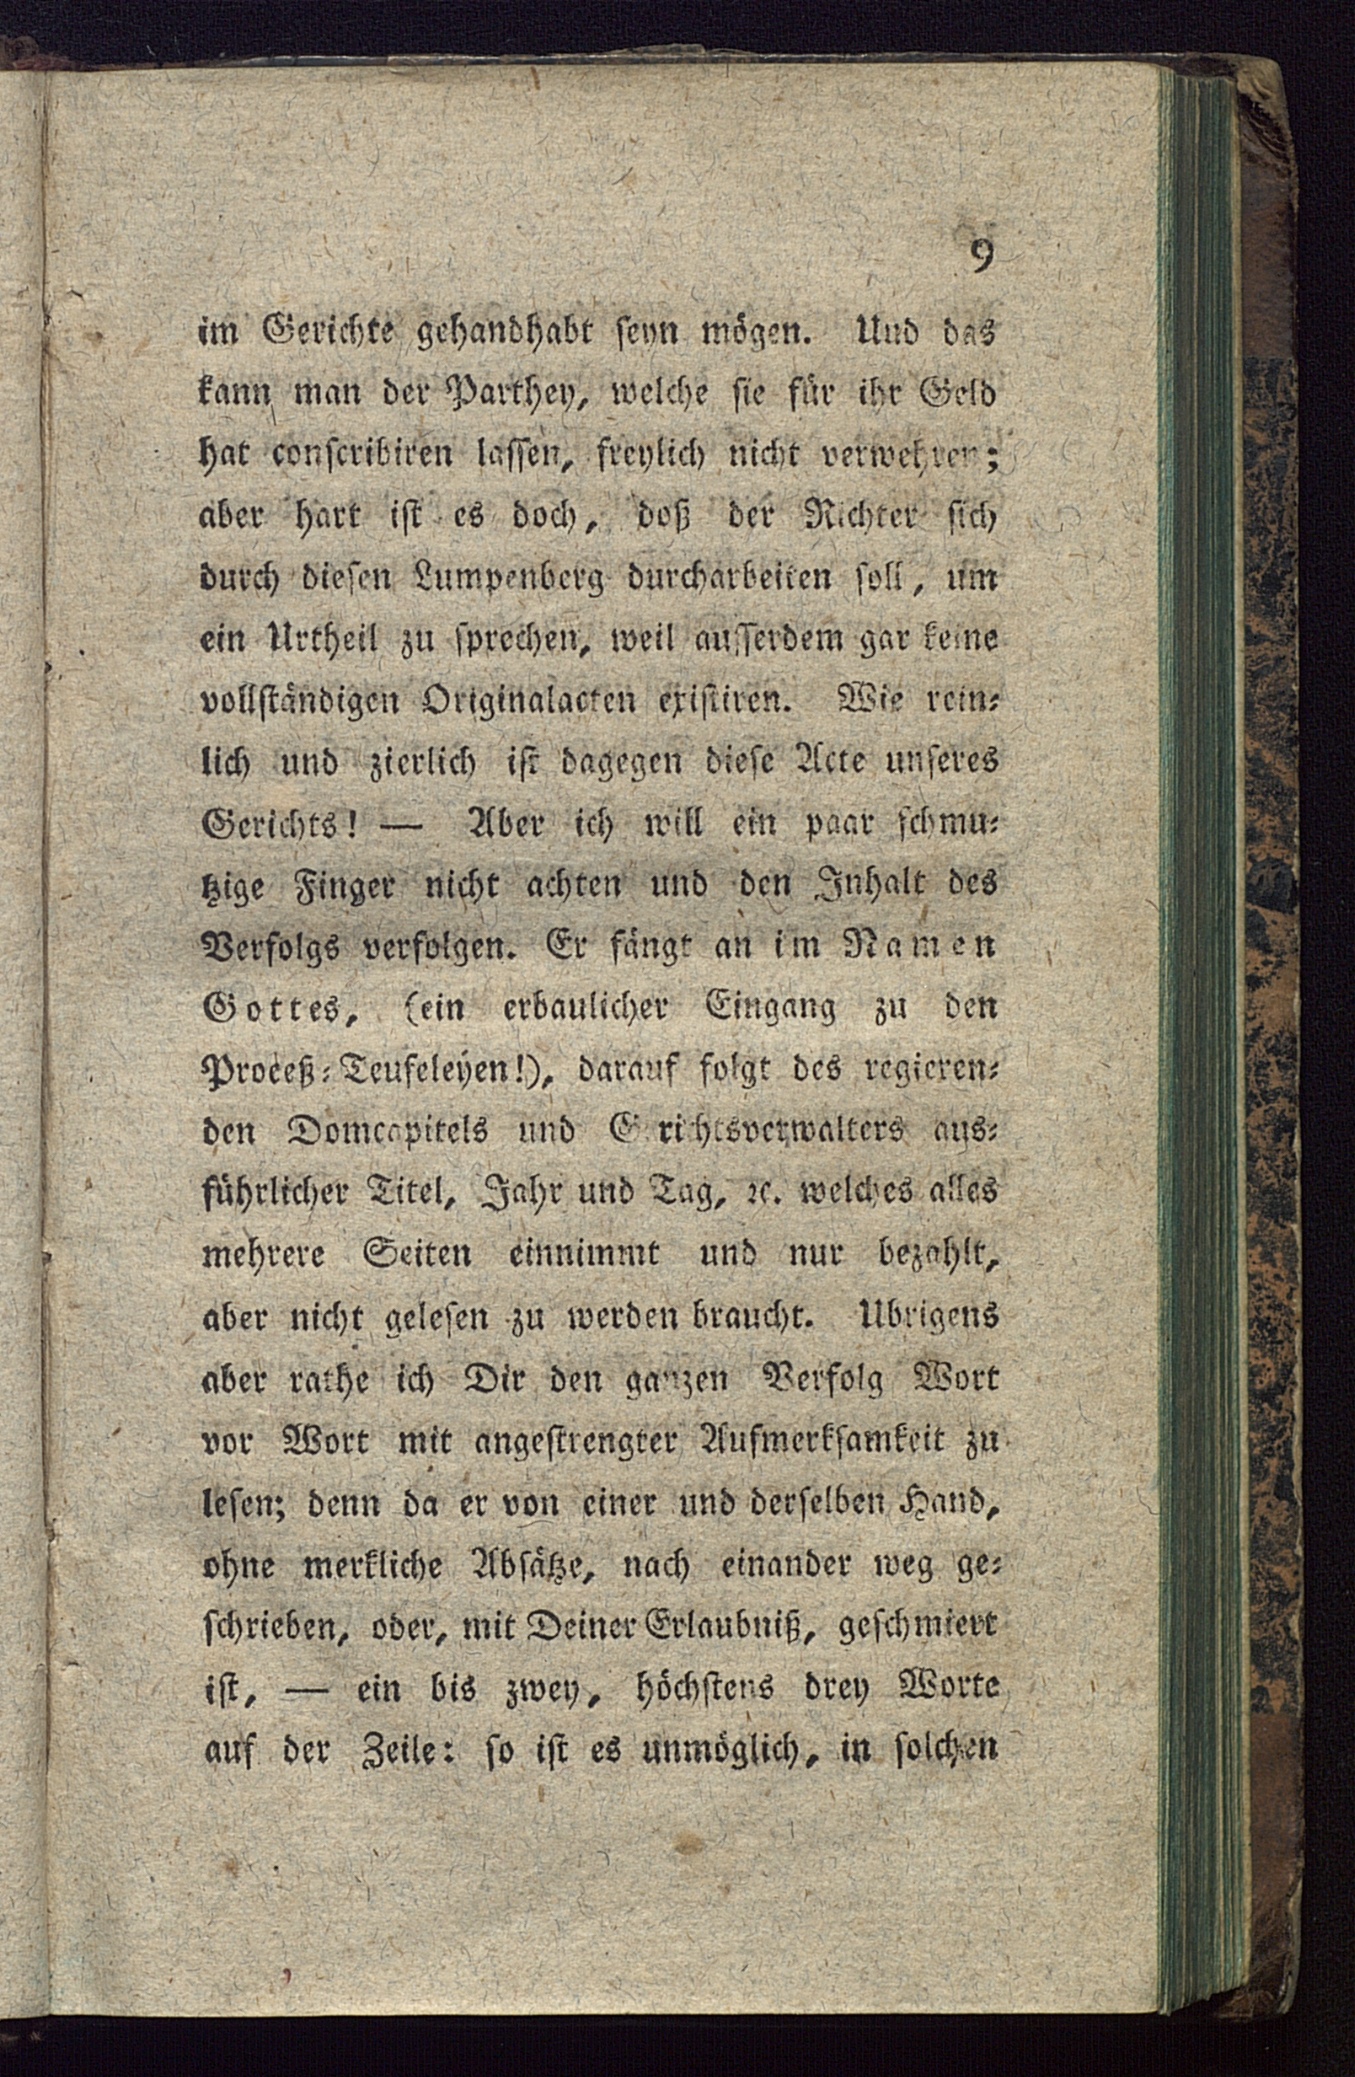 9
im Gerichte gehandhabt seyn mögen. Und das
kann man der Parthey, welche sie für ihr Geld
hat conscribiren lassen, freylich nicht verwehren;
aber hart ist es doch, doß der Richter sich
durch diesen Lumpenberg durcharbeiten soll, um
ein Urtheil zu sprechen, weil ausserdem gar keine
vollständigen Originalacten existiren. Wie rein-
lich und zierlich ist dagegen diese Acte unseres
Gerichts! — Aber ich will ein paar schmu-
tzige Finger nicht achten und den Inhalt des
Verfolgs verfolgen. Er fängt an im Namen
Gottes, (ein erbaulicher Eingang zu den
Proceß-Teufeleyen!), darauf folgt des regieren-
den Domcapitels und Gerichtsverwalters aus-
führlicher Titel, Jahr und Tag, ꝛc. welches alles
mehrere Seiten einnimmt und nur bezahlt,
aber nicht gelesen zu werden braucht. Ubrigens
aber rathe ich Dir den ganzen Verfolg Wort
vor Wort mit angestrengter Aufmerksamkeit zu
lesen; denn da er von einer und derselben Hand,
ohne merkliche Absätze, nach einander weg ge-
schrieben, oder, mit Deiner Erlaubniß, geschmiert
ist, — ein bis zwey, höchstens drey Worte
auf der Zeile: so ist es unmöglich, in solchen